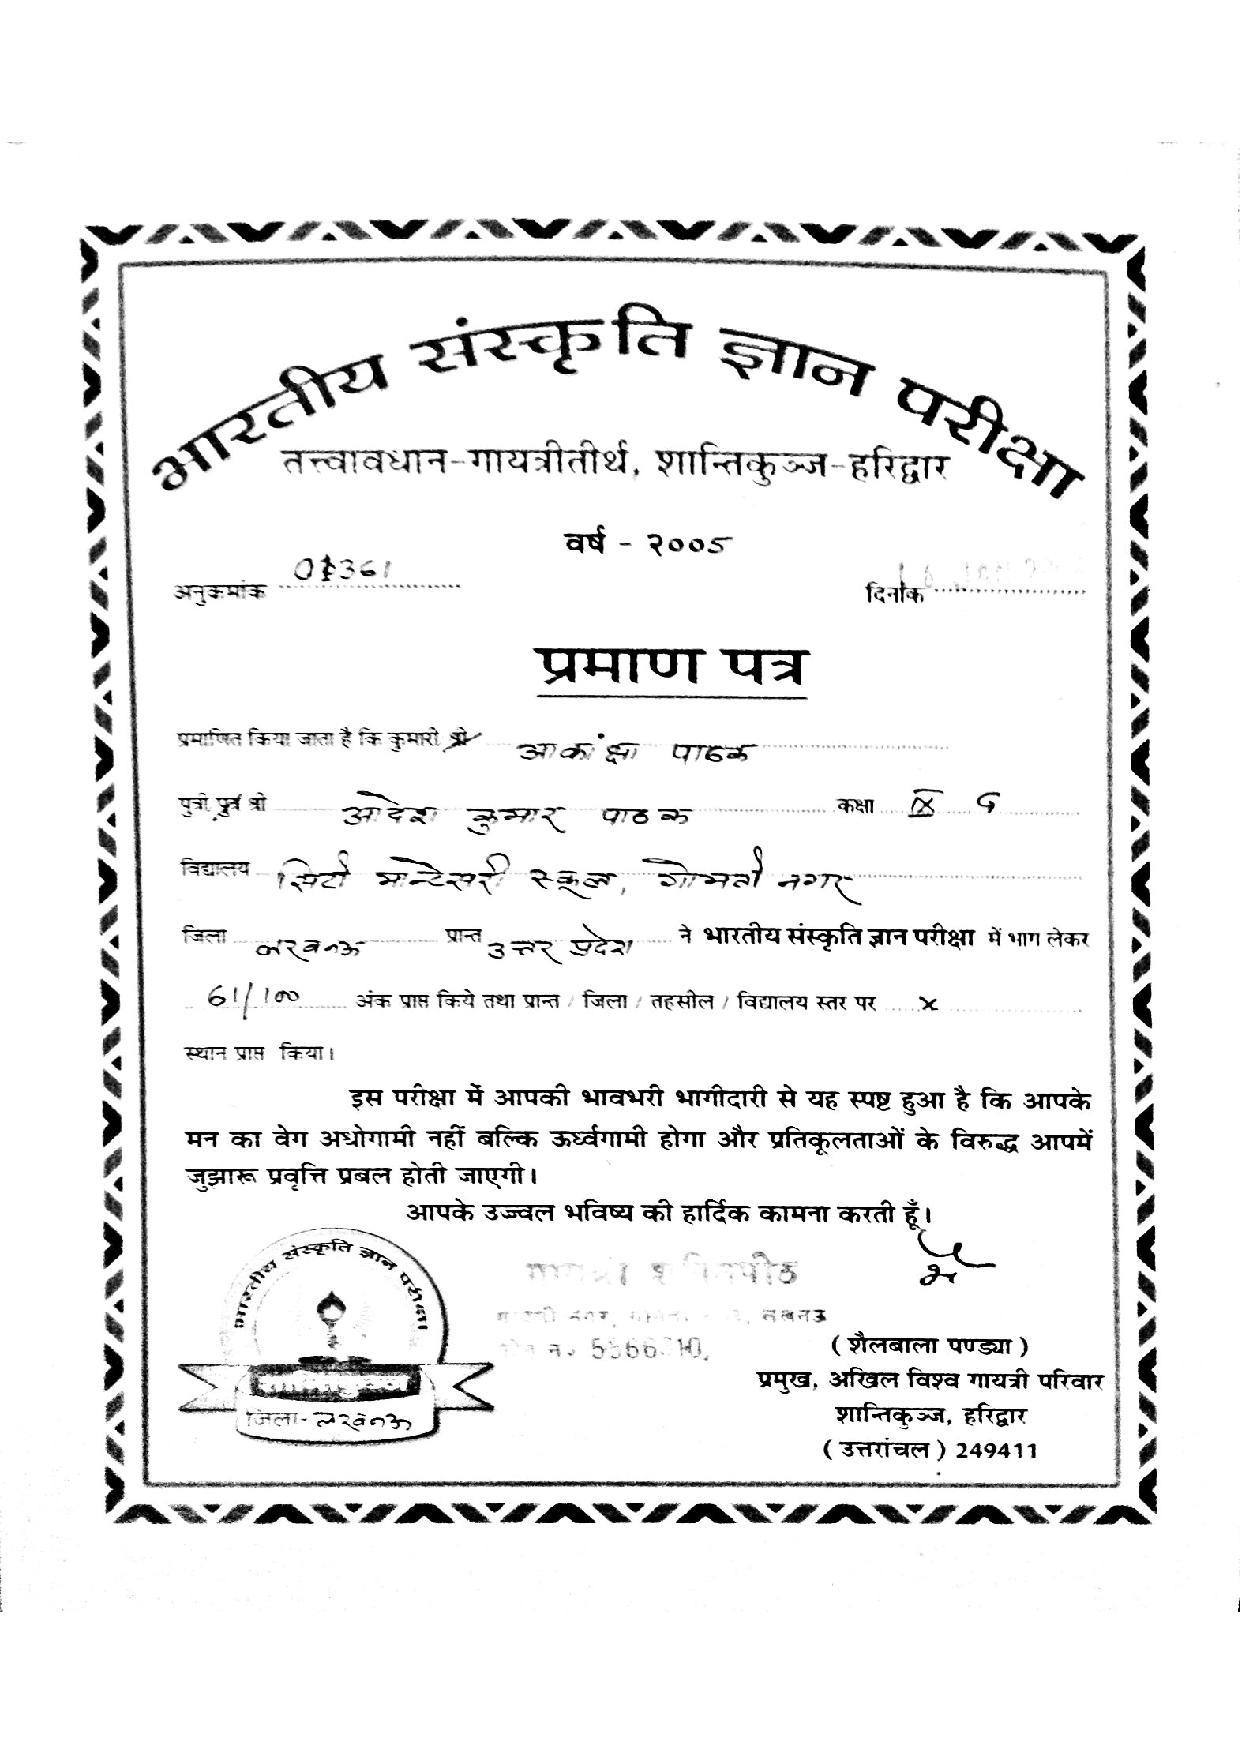 भारतीय संस्कृति ज्ञान परीक्षा
तत्त्वावधान-गायत्रीतीर्थ, शान्तिकुञ्ज-हरिद्वार
वर्ष - २००5
अनुक्रमांक 01361 दिनांक
प्रमाण पत्र
प्रमाणित किया जाता है कि कुमारी श्री आकांक्षा पाठक
पुत्री पुत्र श्री आदेश कुमार पाठक कक्षा IX G
विद्यालय सिटी मान्टेसरी स्कूल, गोमती नगर
जिला लखनऊ प्रान्त उत्तर प्रदेश ने भारतीय संस्कृति ज्ञान परीक्षा में भाग लेकर
61/100 अंक प्राप्त किये तथा प्रान्त / जिला / तहसील / विद्यालय स्तर पर x
स्थान प्राप्त किया।
इस परीक्षा में आपकी भावभरी भागीदारी से यह स्पष्ट हुआ है कि आपके
मन का वेग अधोगामी नहीं बल्कि ऊर्ध्वगामी होगा और प्रतिकूलताओं के विरुद्ध आपमें
जुझारू प्रवृत्ति प्रबल होती जाएगी।
आपके उज्ज्वल भविष्य की हार्दिक कामना करती हूँ।
भारतीय संस्कृति ज्ञान परीक्षा
जिला-लखनऊ
गायत्री शक्तिपीठ
नगर, लखनऊ
(शैलबाला पण्ड्या)
प्रमुख, अखिल विश्व गायत्री परिवार
शान्तिकुञ्ज, हरिद्वार
(उत्तरांचल) 249411